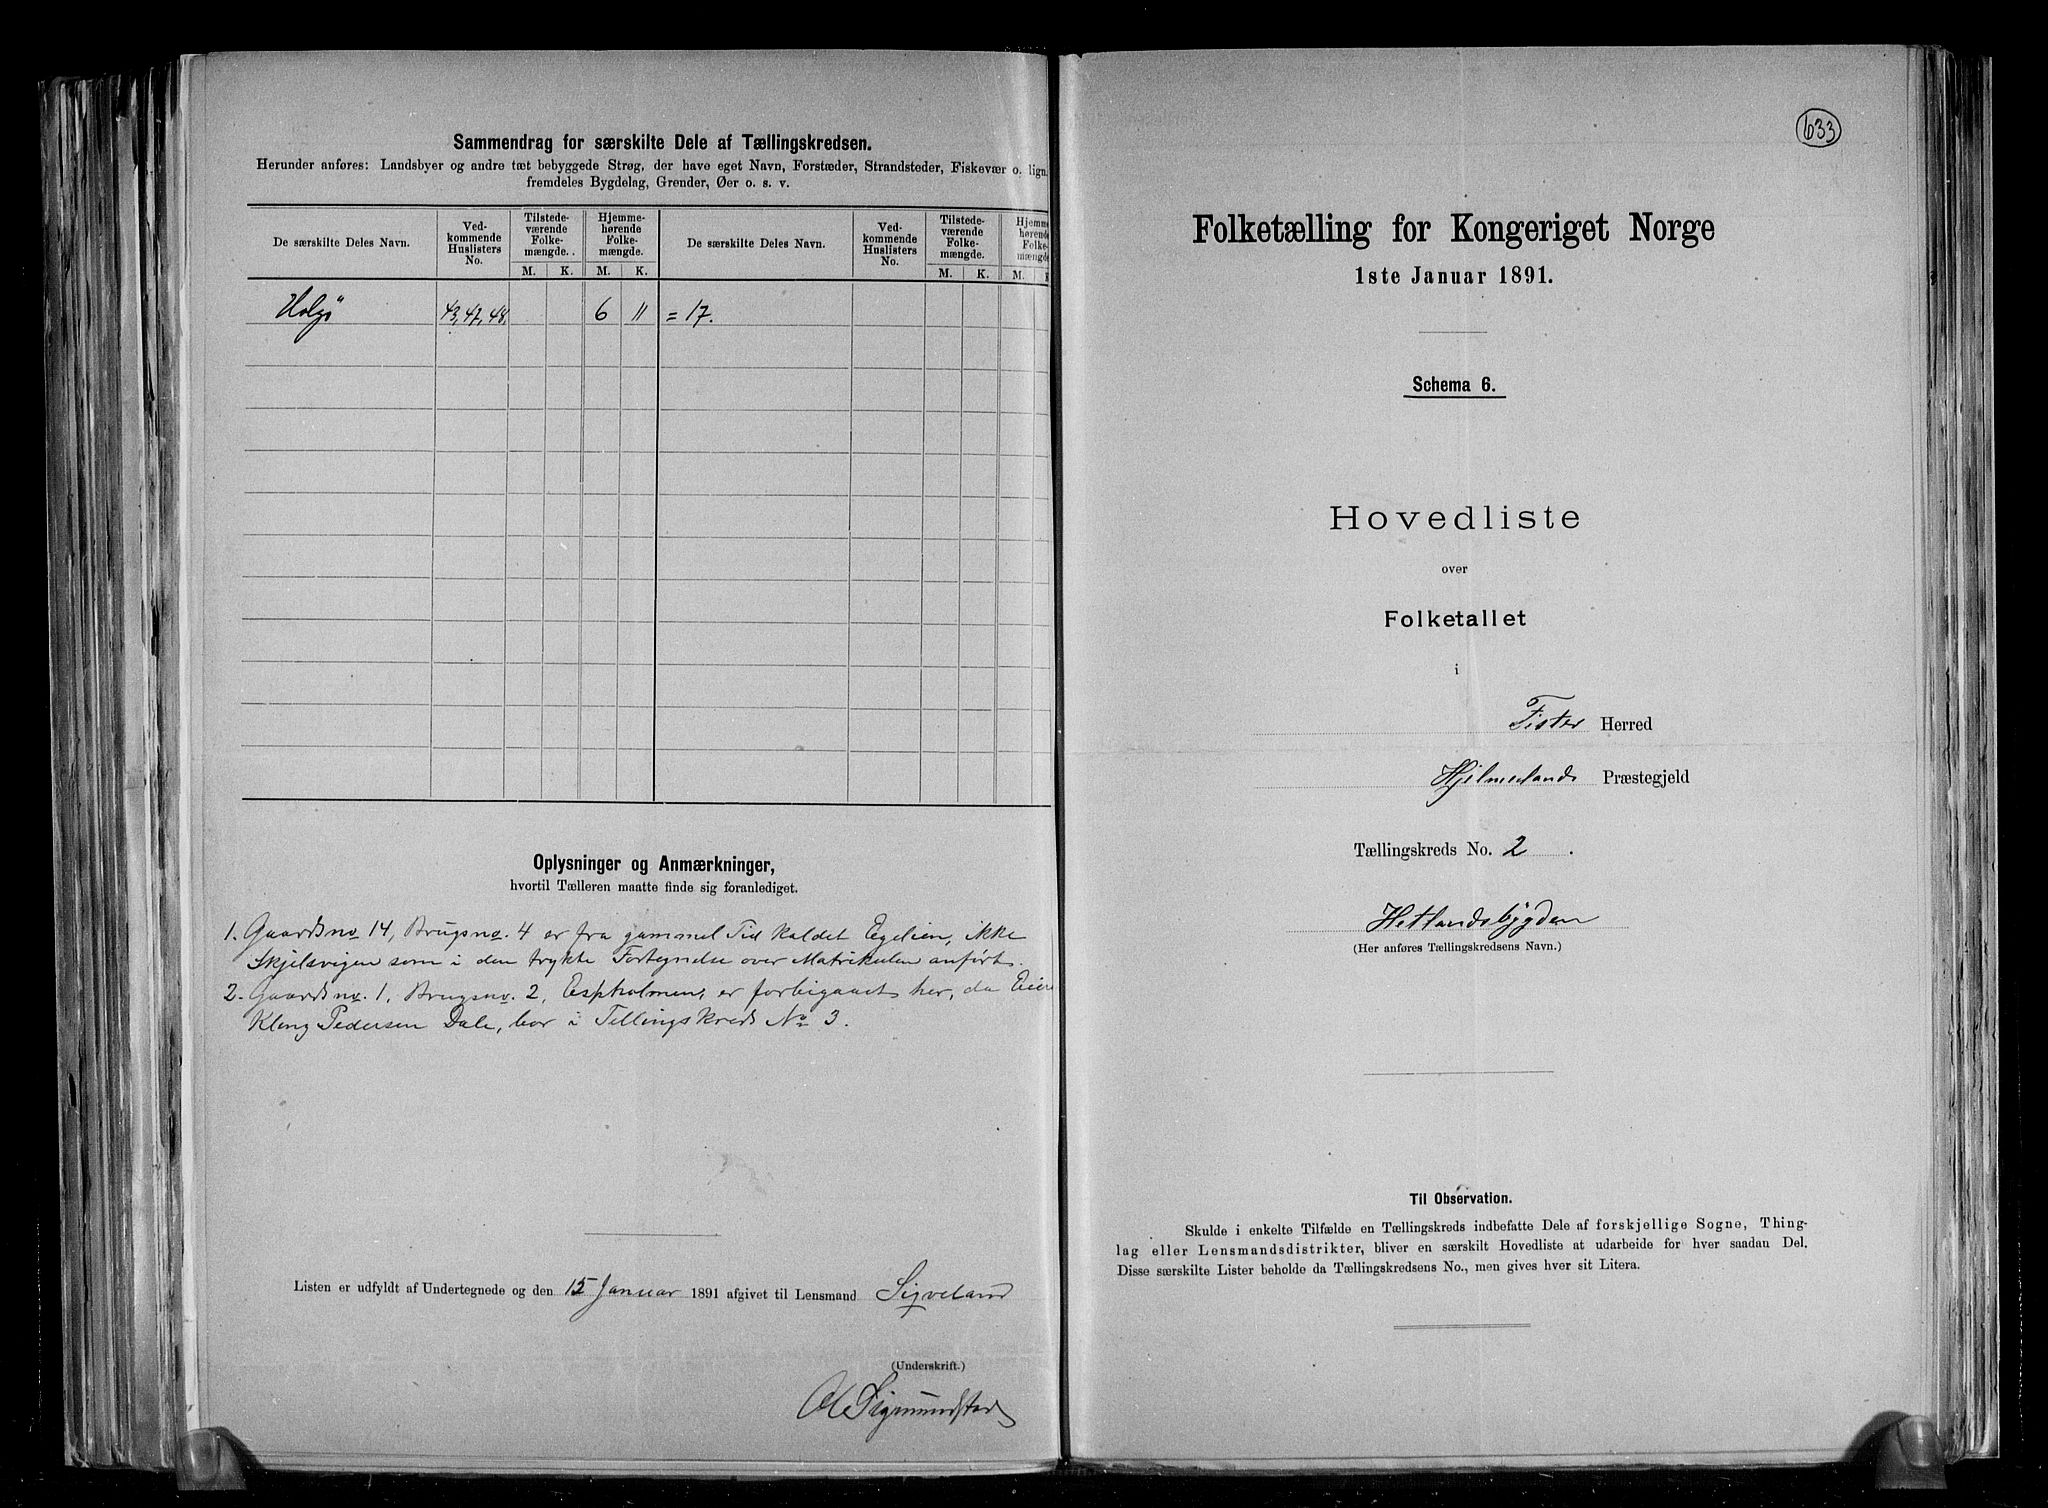 Sammendrag for særskilte Dele af Tællingskredsen.
Herunder anføres: Landsbyer og andre tæt bebyggede Strøg, der have eget Navn, Forstæder, Strandsteder, Fiskevær o. lign.
fremdeles Bygdelag, Grender, Øer o. s. v.
De særskilte Deles Navn. Ved-kommende Huslisters No. Tilstede-værende Folke-mængde. Hjemme-hørende Folke-mængde. De særskilte Deles Navn. Ved-kommende Huslisters No. Tilstede-værende Folke-mængde. Hjemme-hørende Folke-mængde
M. K. M. K. M. K. M. K
Halgø 43, 47, 48. 6 11 = 17.
Oplysninger og Anmærkninger,
hvortil Tælleren maatte finde sig foranlediget.
1. Gaardsno 14, Brugsno. 4 er fra gammel Tid kaldet Egelien, ikke
Skjelsvigen som i den trykte Fortegnelse over Matrikulen anført.
2. Gaardsno. 1, Brugsno. 2, Espholmen, er forbigaaet her, da Eier
Kleng Pedersen Dale, bor i Tellingskreds No 3.
Listen er udfyldt af Undertegnede og den 15 Januar 1891 afgivet til Lensmand Sigveland
(Underskrift.)
Sigmundstad
633
Folketælling for Kongeriget Norge
1ste Januar 1891.
Schema 6.
Hovedliste
over
Folketallet
i
Fister Herred
Hjelmelands Præstegjeld
Tællingskreds No. 2.
Hetlandsbygden
(Her anføres Tællingskredsens Navn.)
Til Observation.
Skulde i enkelte Tilfælde en Tællingskreds indbefatte Dele af forskjellige Sogne, Thing-
lag eller Lensmandsdistrikter, bliver en særskilt Hovedliste at udarbeide for hver saadan Del.
Disse særskilte Lister beholde da Tællingskredsens No., men gives hver sit Litera.